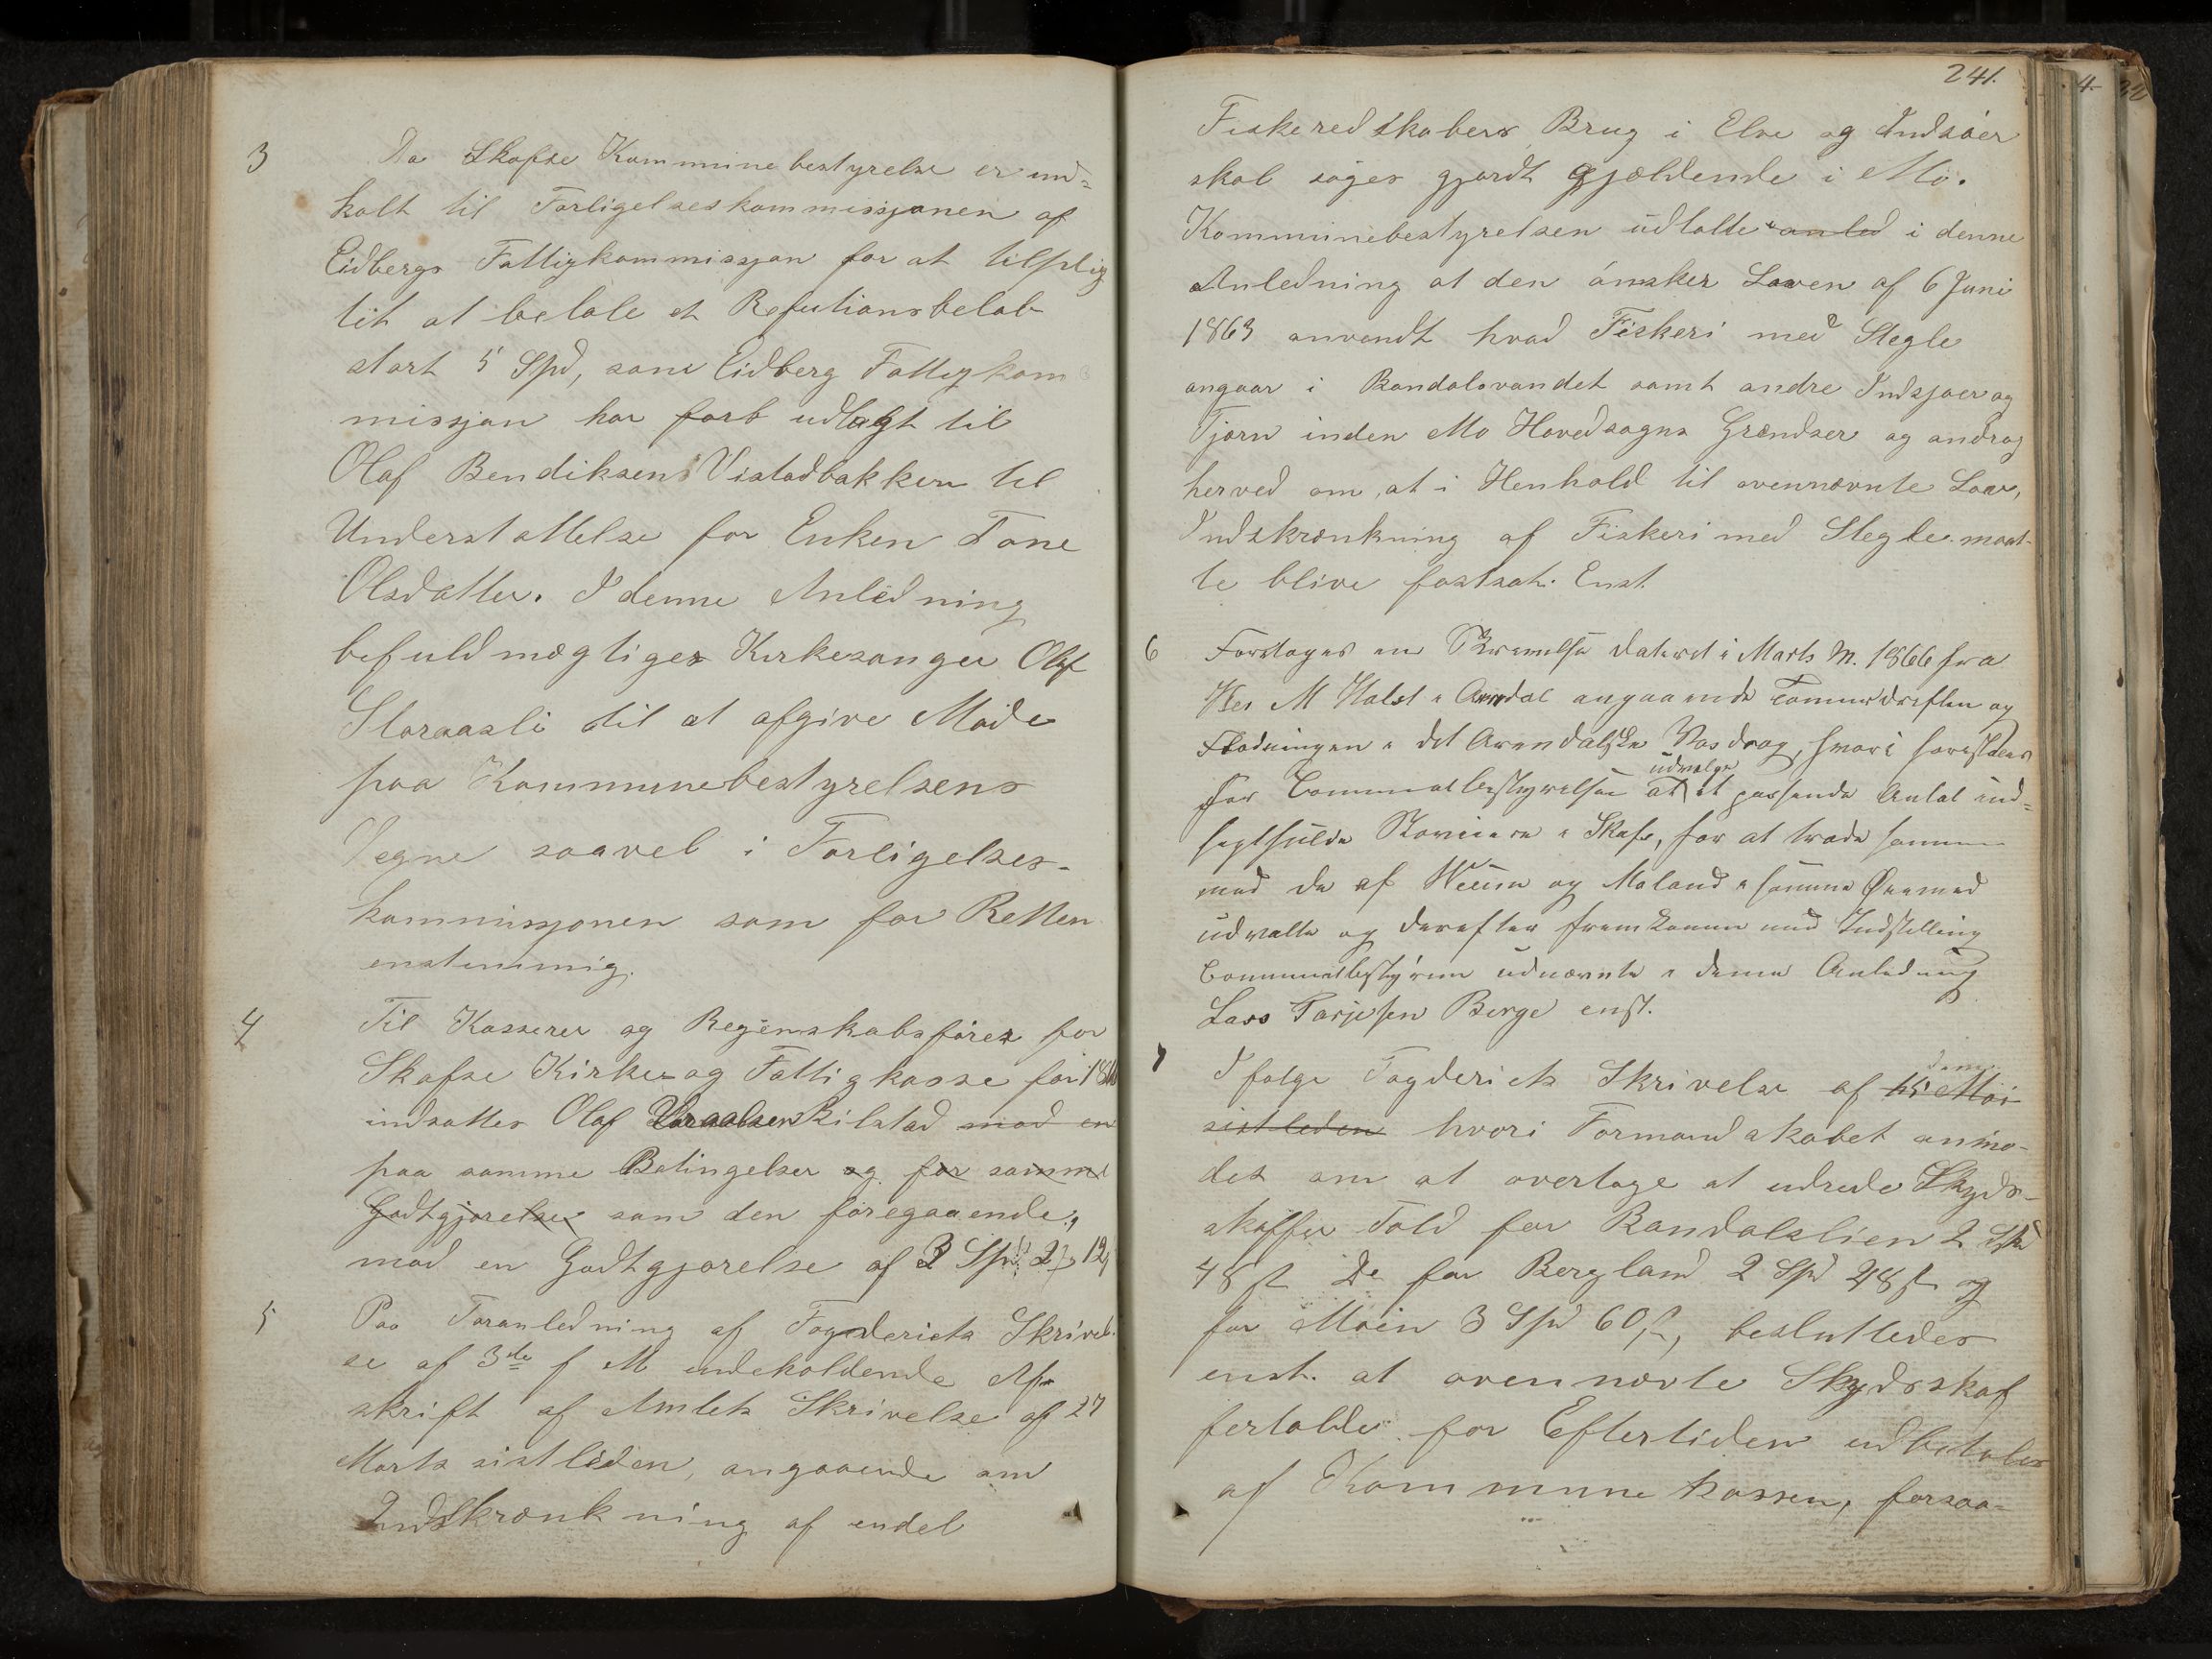 3 Da Skafse Kommunebestyrelse er ind-
kalt til Forligelseskommissjonen af
Eidbergs Fattigkommissjon for at tilplig
tit at betale et Refutionsbeløb
stort 5 Spd, som Eidberg Fattigkom
missjon har forb udlagt til
Olaf Bendiksen Vistadbakken til
Understøttelse for Enken Tone
Olsdatter. I denne Anledning
befuldmægtiges Kirkesanger Olaf
Storaasli til at afgive Møde
paa Kommunebestyrelsens
Vegne saavel i Forligelses-
kommissjonen som for Retten
enstemmig.
4 Til Kasserer og Regenskabsfører for
Skafse Kirke og Fattigkasse for
indsattes Olaf Rilstad mod en
paa samme Betingelser og for samme
Godtgjørelse som den foregaaende,
mod en Godtgjørelse af 3 Spd
5 Paa Foranledning af Fogderiets Skrivel-
se af 3die f M indeholdende Af-
skrift af Amtets Skrivelse af 27
Marts sistleden, angaaende om
Indskrænkning af endel
241.
Fiskeredskabers Brug i Elve og Indsøer
skal søges gjordt gjældende i Mo.
Kommunebestyrelsen udtalte anled i denne
Anledning at den ønsker Loven af 6 Juni
1863 anvendt hvad Fiskeri med Stegle
angaar i Bandalsvandet samt andre Indsjøer og
Tjørn inden Mo Hovedsogns Grændser og androg
herved om, at i Henhold til ovennævnte Lov,
Indskrænkning af Fiskeri med Stegle maat-
te blive fastsat. Enst.
6 Foretages en Skrivelse dateret i Marts M. 1866 fra
Hr M Holst i Arendal angaaende Tømmerdriften og
Flødningen i det Arendalske Vasdrag, hvori foreslaaes
for Communebestyrelsen at udvælge et passende Antal ind-
sigtsfulde i Skafse, for at træde sammen
med de af og Moland i samme Øiemed
udvalte og derefter fremkomme med Indstilling
Communebestyreren udnævnte i denne Anledning
Lars Tarjesen Berge enst.
7 Ifølge Fogderiets Skrivelse af 15 Mai denne
sistleden hvori Formandskabet anmo-
des om at overtage at udrede Skyds-
skaffer Told for Bandakslien 2 Spd
48 ß Do for Bergland 2 Spd 48 ß og
for Moen 3 Spd 60 ß, besluttedes
enst. at ovennævte Skydsskaf
fertolde for Eftertiden udbetales
af Kommunekassen, forsaa-